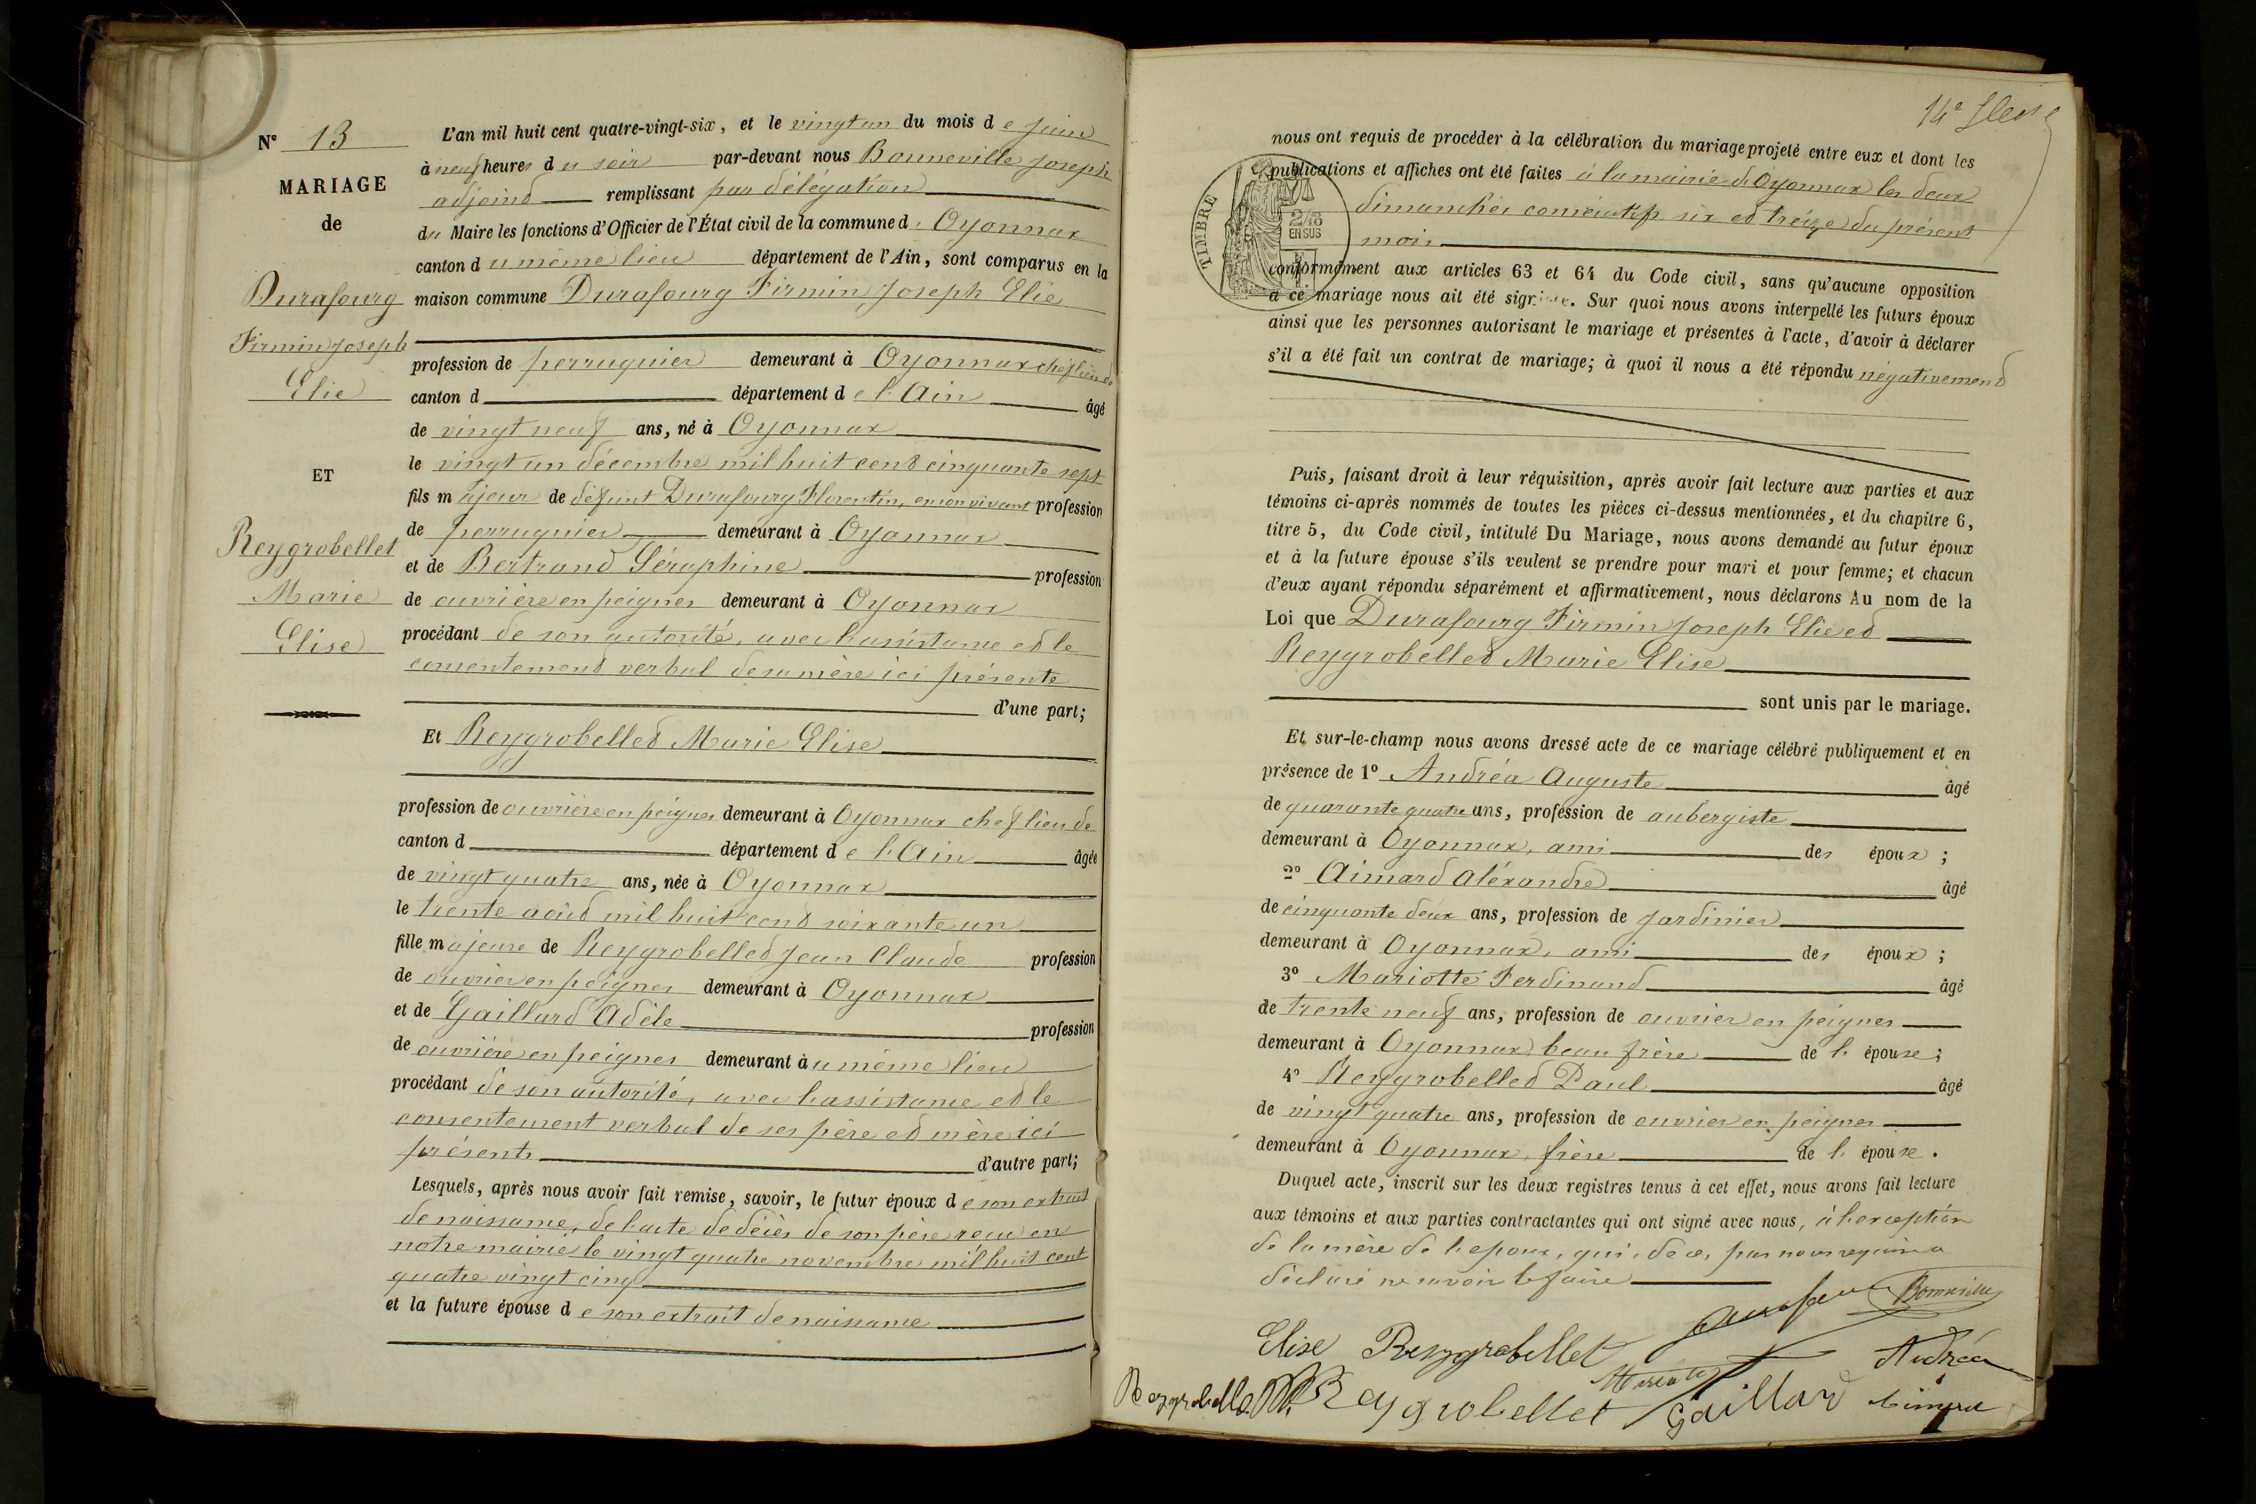 N° 13
MARIAGE
de
Durafourg
Firmin Joseph
Elie
ET
Reygrobellet
Marie
Elise
L'an mil huit cent quatre-vingt-six, et le vingt un du mois de juin
à neuf heures du soir par-devant nous Bonneville Joseph
adjoint remplissant par délégation
du Maire les fonctions d'Officier de l'État civil de la commune d'Oyonnax
canton du même lieu département de l'Ain, sont comparus en la
maison commune Durafourg Firmin Joseph Elie
profession de perruquier demeurant à Oyonnax chef lieu de
canton d département de l'Ain âgé
de vingt neuf ans, né à Oyonnax
le vingt un décembre mil huit cent cinquante sept
fils majeur de défunt Durafourg Florentin, en son vivant profession
de perruquier demeurant à Oyonnax
et de Bertrand Séraphine profession
de ouvrière en peignes demeurant à Oyonnax
procédant de son autorité, avec l'assistance et le
consentement verbal de sa mère ici présente
d'une part;
Et Reygrobellet Marie Elise
profession de ouvrière en peignes demeurant à Oyonnax chef lieu de
canton d département de l'Ain âgée
de vingt quatre ans, née à Oyonnax
le trente août mil huit cent soixante un
fille majeure de Reygrobellet Jean Claude profession
de ouvrier en peignes demeurant à Oyonnax
et de Gaillard Adèle profession
de ouvrière en peignes demeurant au même lieu
procédant de son autorité, avec l'assistance et le
consentement verbal de ses père et mère ici
présents d'autre part;
Lesquels, après nous avoir fait remise, savoir, le futur époux de son extrait
de naissance, de l'acte de décès de son père reçu en
notre mairie le vingt quatre novembre mil huit cent
quatre vingt cinq
et la future épouse de son extrait de naissance
14e
nous ont requis de procéder à la célébration du mariage projeté entre eux et dont les
publications et affiches ont été faites à la mairie d'Oyonnax les deux
dimanches consécutifs six et treize du présent
mois
TIMBRE
2/10
EN SUS
conformément aux articles 63 et 64 du Code civil, sans qu'aucune opposition
à ce mariage nous ait été signifiée. Sur quoi nous avons interpellé les futurs époux
ainsi que les personnes autorisant le mariage et présentes à l'acte, d'avoir à déclarer
s'il a été fait un contrat de mariage; à quoi il nous a été répondu négativement
Puis, faisant droit à leur réquisition, après avoir fait lecture aux parties et aux
témoins ci-après nommés de toutes les pièces ci-dessus mentionnées, et du chapitre 6,
titre 5, du Code civil, intitulé Du Mariage, nous avons demandé au futur époux
et à la future épouse s'ils veulent se prendre pour mari et pour femme; et chacun
d'eux ayant répondu séparément et affirmativement, nous déclarons Au nom de la
Loi que Durafourg Firmin Joseph Elie et
Reygrobellet Marie Elise
sont unis par le mariage.
Et sur-le-champ nous avons dressé acte de ce mariage célébré publiquement et en
présence de 1° Andréa Auguste âgé
de quarante quatre ans, profession de aubergiste
demeurant à Oyonnax, ami des époux;
2° Aimard Alexandre âgé
de cinquante deux ans, profession de jardinier
demeurant à Oyonnax, ami des époux;
3° Mariotte Ferdinand âgé
de trente neuf ans, profession de ouvrier en peignes
demeurant à Oyonnax, beau frère de l'épouse;
4° Reygrobellet Paul âgé
de vingt quatre ans, profession de ouvrier en peignes
demeurant à Oyonnax, frère de l'épouse.
Duquel acte, inscrit sur les deux registres tenus à cet effet, nous avons fait lecture
aux témoins et aux parties contractantes qui ont signé avec nous, à l'exception
de la mère de l'époux, qui, de ce, par nous requise a
déclaré ne savoir le faire
Bonneville
Elise Reygrobellet
Andréa
Mariotte
Reygrobellet
Reygrobellet Gaillard Aimard